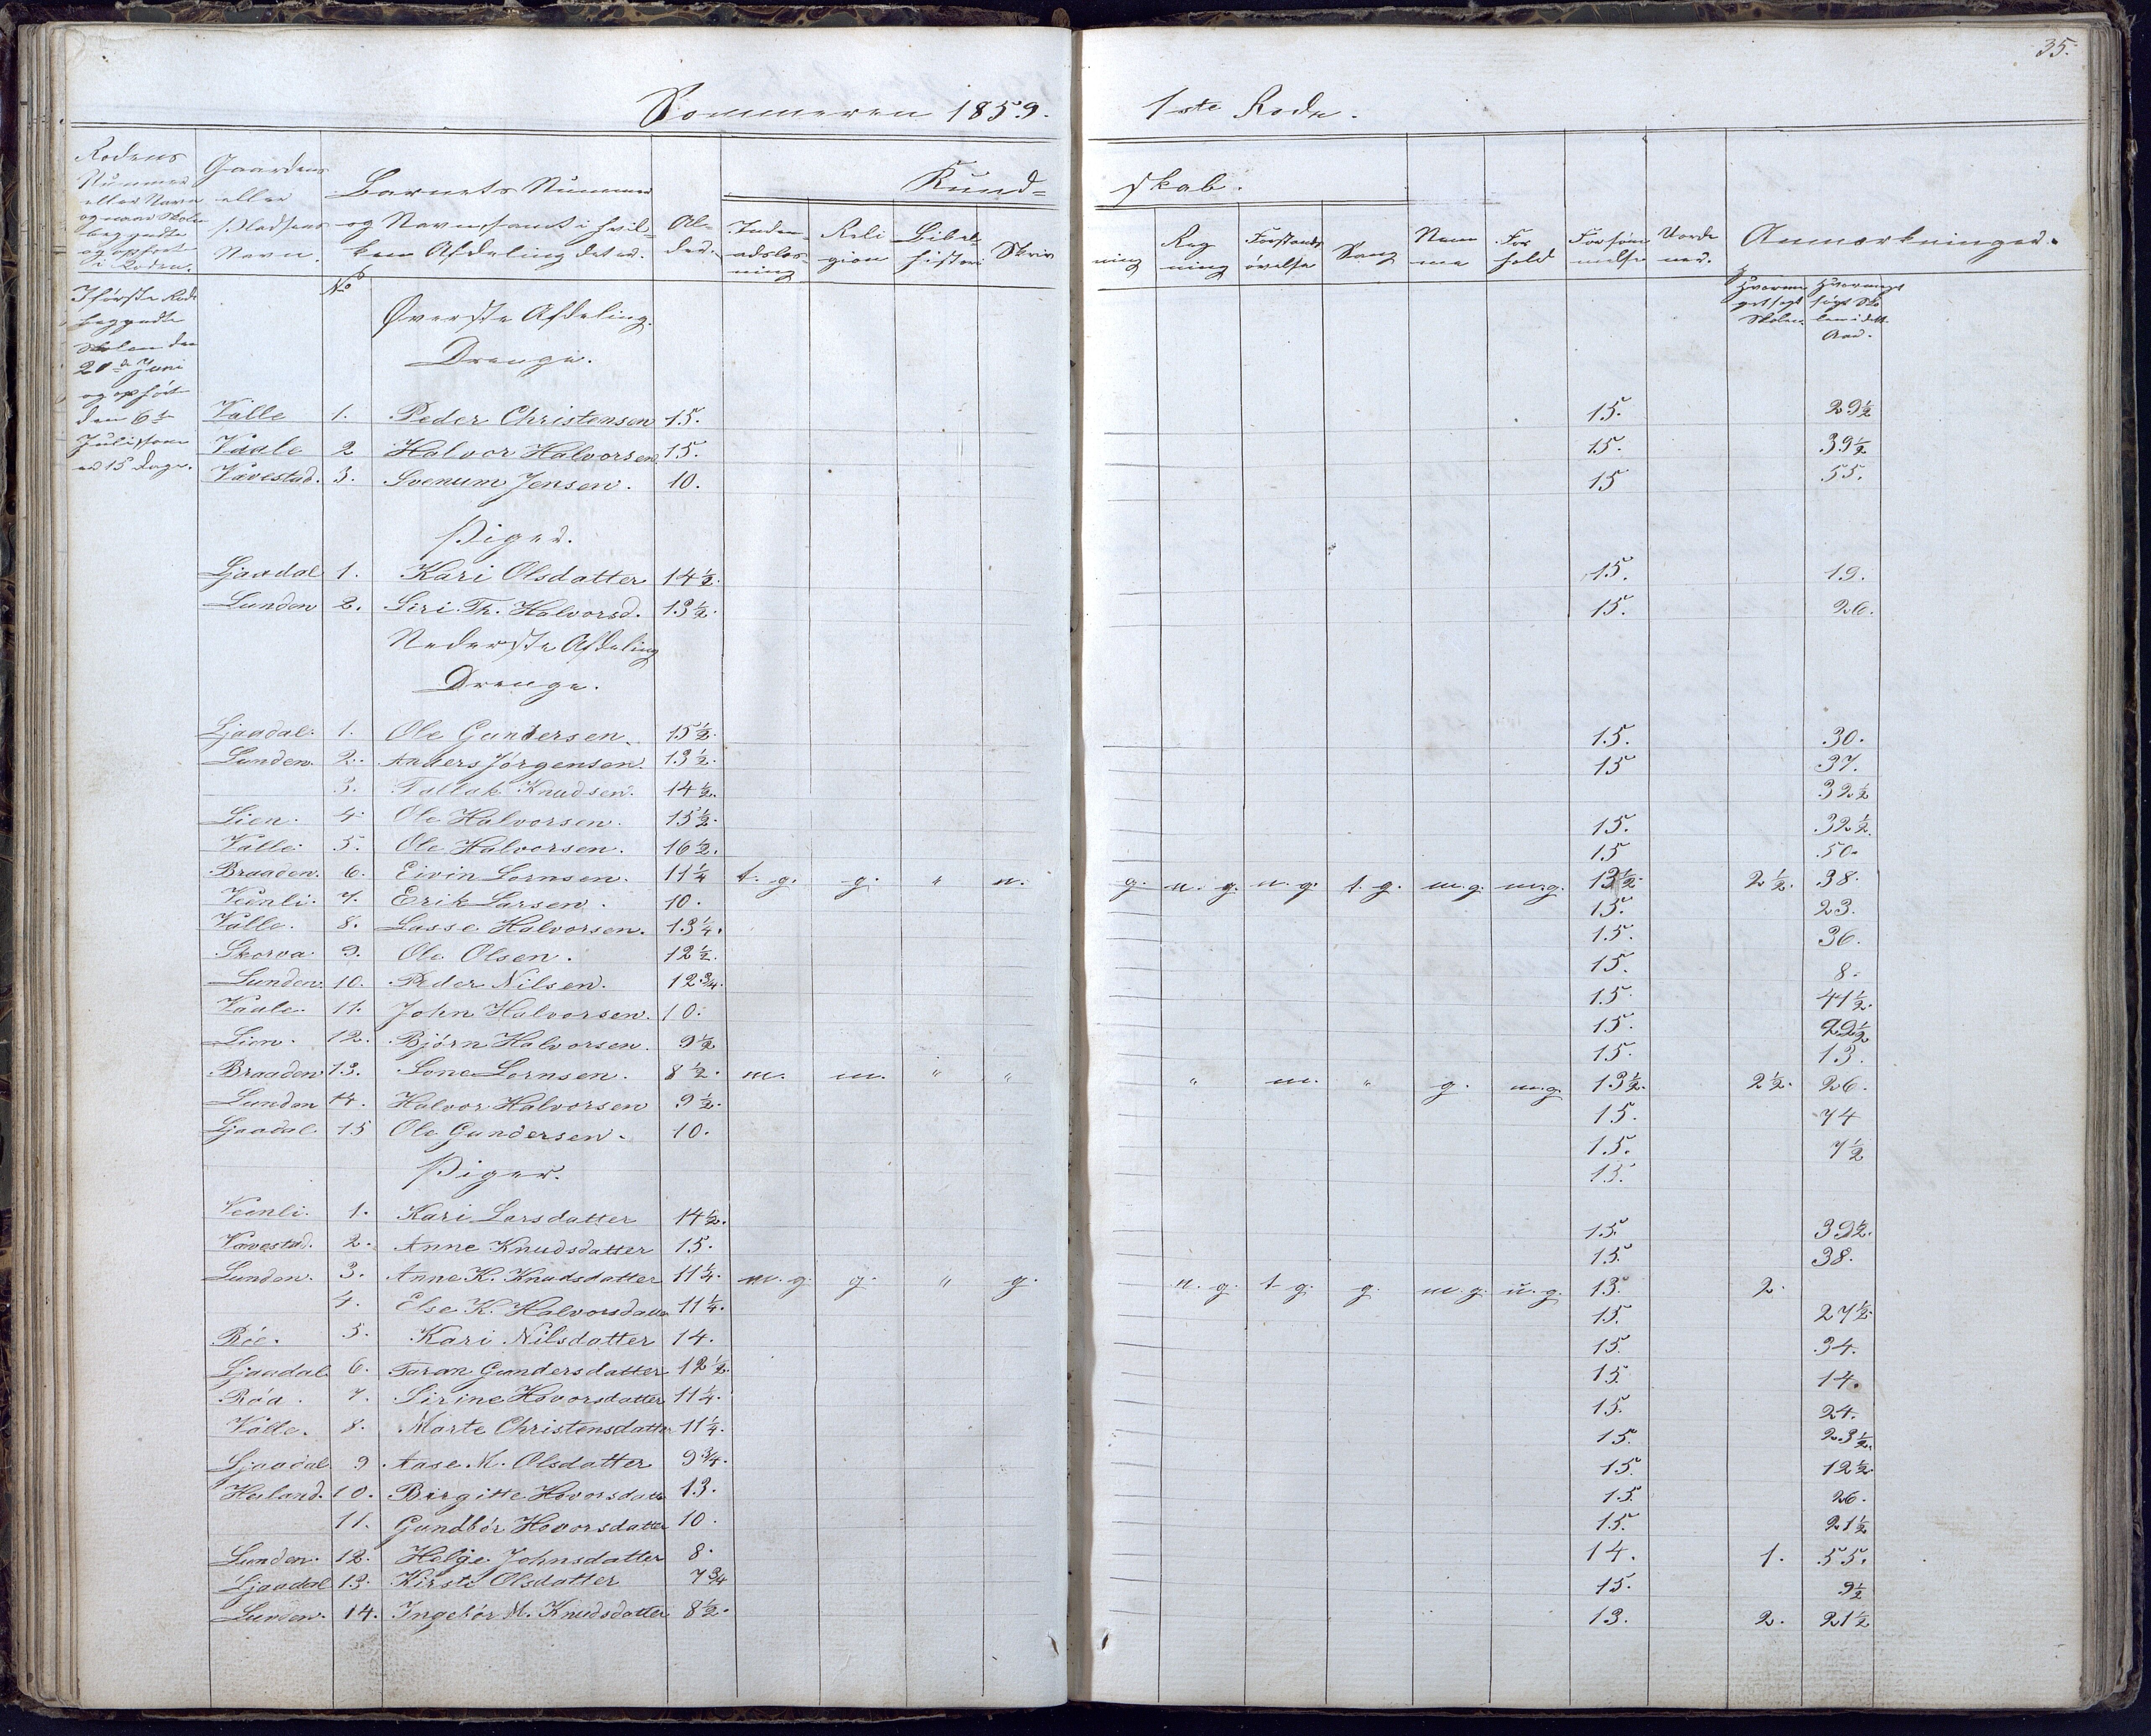 35.
Sommeren 1859. 1ste Rode.
Rodens Nummer eller Navn og naar Skolen begyndte og ophørt i Roden.
Gaardens eller Pladsens Navn.
Barnets Nummer og Navn, samt i hvilken Afdeling det er.
Alder.
Kundskab.
Indenadslæsning
Religion
Bibelhistori
Skrivning
Regning
Forstandsøvelse
Sang
Nemme
Forhold
Forsømmelse
Anmærkninger.
No
I første Rode begyndte Skolen den 20de Juni og ophørt den 6te Juli, som er 15 Dage.
Øverste Afdeling.
Drenge.
Valle 1. Peder Christensen 15. 15. 29½
Vaale 2 Halvor Halvorsen 15. 15. 39½
Vævestad. 3. Svenum Jensen. 10. 15 55.
Piger.
Ljaadal 1. Kari Olsdatter 14½. 15. 19.
Lunden 2. Siri Th. Halvorsd. 13½. 15. 26.
Nederste Afdeling
Drenge.
Ljaadal. 1. Ole Gundersen. 15½. 15. 30.
Lunden. 2. Anders Jørgensen. 13½. 15 37.
3. Tallak Knudsen. 14½. 32½
Lien. 4. Ole Halvorsen. 15½. 15. 32½.
Valle. 5. Ole Halvorsen. 16½. 15 50.
Braaden. 6. Eivin Lornsen. 11¼ t. g. g. " n. g. n. g. n. g. t. g. m. g. m.g. 13½. 2½. 38.
Veenli. 7. Erik Larsen. 10. 15. 23.
Valle. 8. Lasse Halvorsen. 13¼. 15. 36.
Skorva. 9. Ole Olsen. 12½. 15. 8.
Lunden. 10. Peder Nilsen. 12¾. 15. 41½.
Vaale. 11. John Halvorsen. 10. 15. 22½
Lien. 12. Bjørn Halvorsen. 9½ 15. 13.
Braaden 13. Lone Lornsen. 8½. m. m. " " " m. " g. m.g. 13½. 2½. 26.
Lunden 14. Halvor Halvorsen 9½. 15. 74
Ljaadal. 15 Ole Gundersen. 10. 15. 7½
Piger. 15.
Veenli. 1. Kari Larsdatter 14½. 15. 39½.
Vævestad. 2. Anne Knudsdatter 15. 15. 38.
Lunden. 3. Anne K. Knudsdatter 11¼. m. g. g. " g. n. g. t. g. g. m. g. u. g. 13. 2.
4. Else K. Halvorsdatter 11¼. 15. 27½.
Röe. 5. Kari Nilsdatter 14. 15. 34.
Ljaadal. 6. Taran Gundersdatter 12½. 15. 14.
Röa. 7. Sirine Hovorsdatter 11¼. 15. 24.
Valle. 8. Marte Christensdatter 11¼. 15. 23½.
Ljaadal 9. Aase M. Olsdatter 9¾. 15. 12½.
Heiland. 10. Birgitte Hovorsdatter 13. 15. 26.
11. Gundbör Hovorsdatter 10. 15. 21½
Lunden. 12. Helge Johnsdatter 8. 14. 1. 55.
Ljaadal 13. Kirsti Olsdatter 7¾ 15. 9½
Lunden. 14. Ingebör M. Knudsdatter 8½. 13. 2. 21½